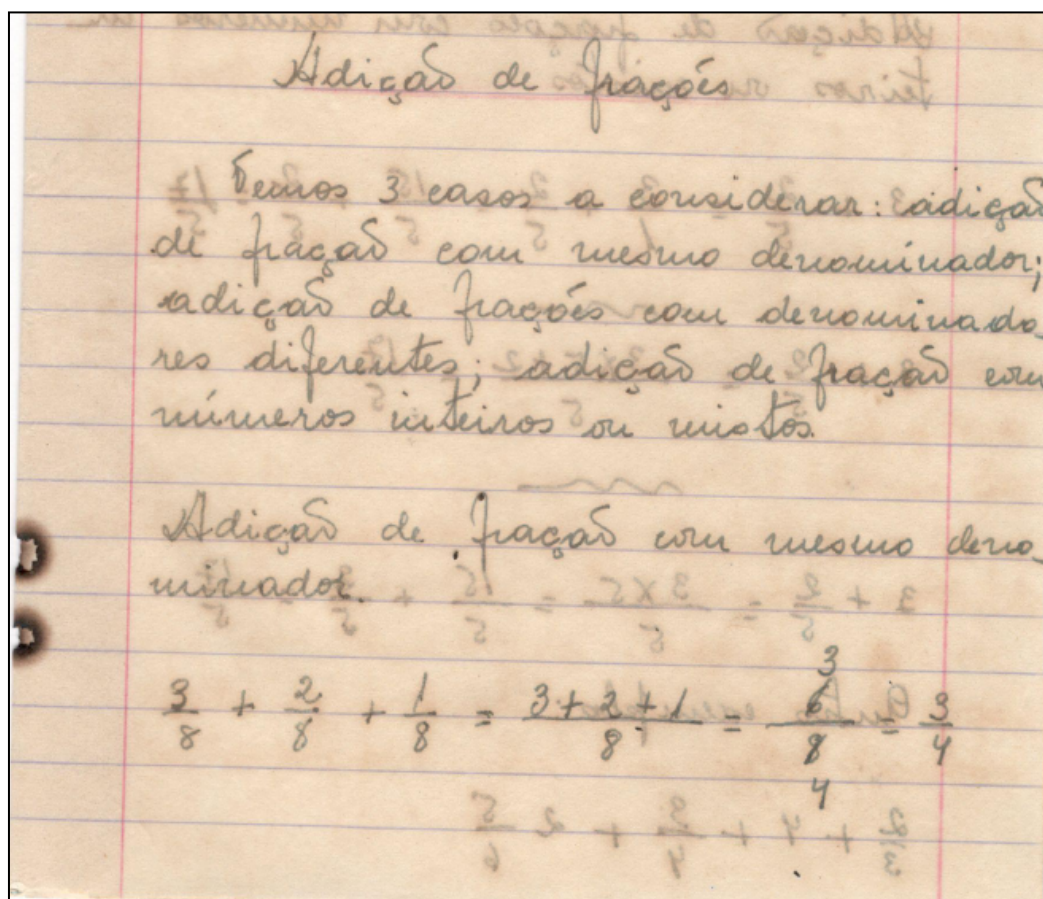 Adição de frações
Temos 3 casos a considerar: adição
de fração com mesmo denominador;
adição de frações com denominado_
res diferentes; adição de fração com
números inteiros ou mistos.
Adição de fração com mesmo deno_
minador.
3/8 + 2/8 + 1/8 = 3+2+1/8 = 6̸ 3/8̸ 4 = 3/4